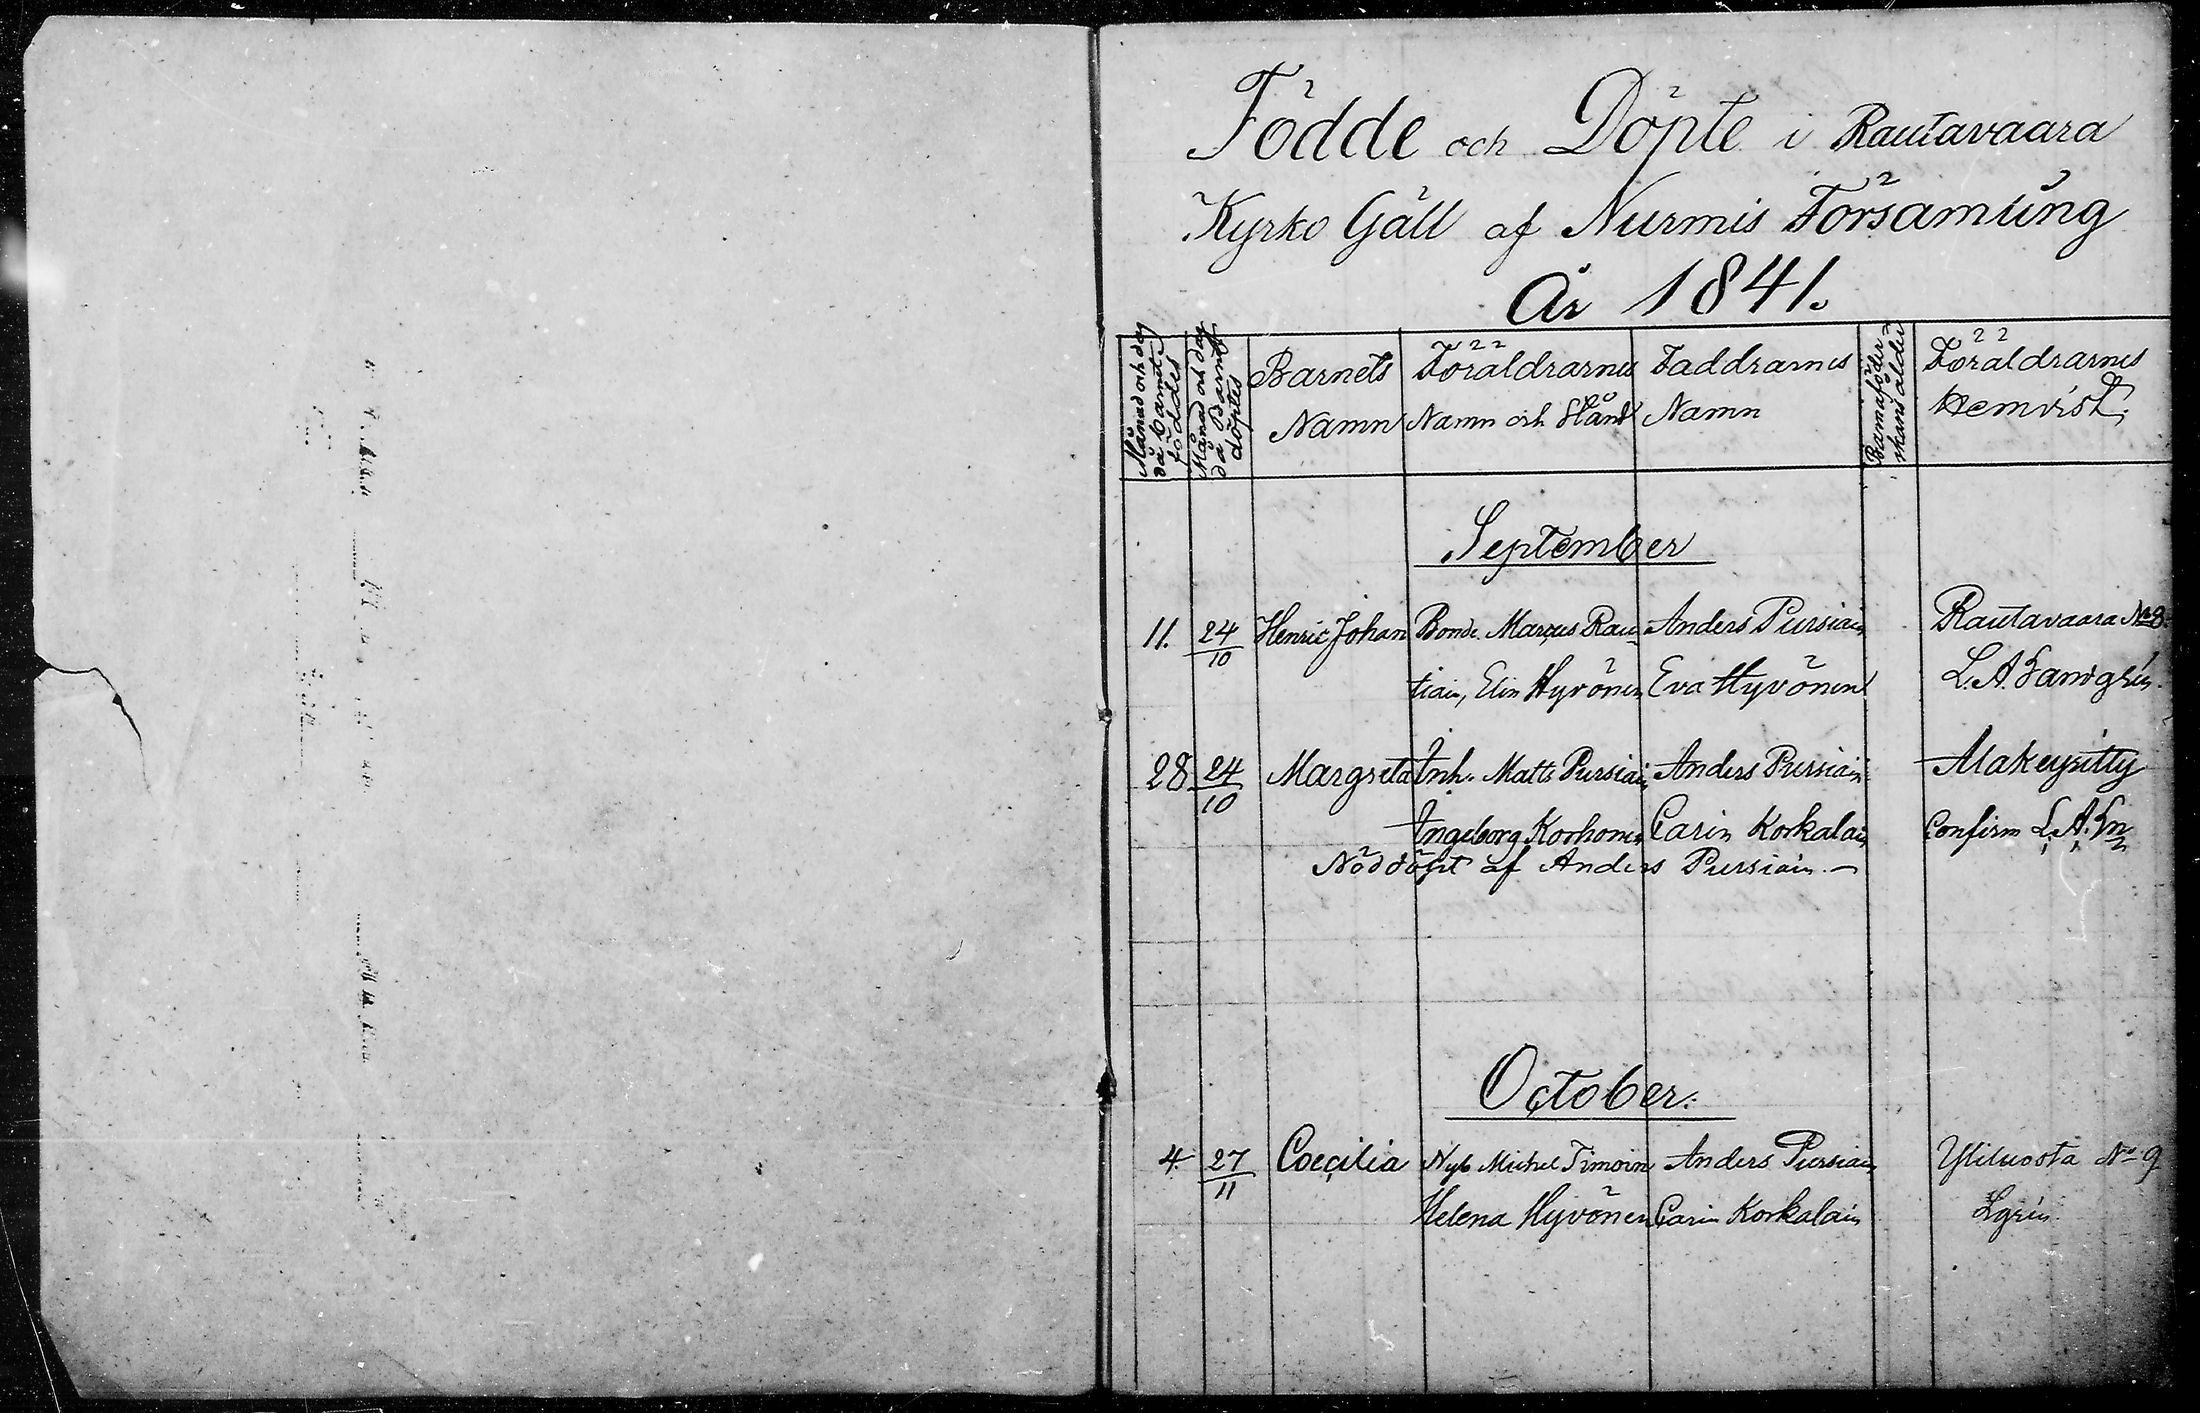 Födde och Döpte i Rautavaara
Kyrko Gäll af Nurmis Församling
År 1841.
Månad och dag då Barnet föddes
Månad och dag då Barnet döptes
Barnets Namn
Föräldrarnes Namn och Stånd
Faddrarnes Namn
Barnaföderskans ålder
Föräldrarnes Hemvist
September
11. 24/10 Henric Johan Bonde Marcus Rau- Anders Pursiain Rautavaara No 8
tiain, Elin Hyvönen Eva Hyvönen L. A. Landgrén
28 24/10 Margreta Inh. Matts Pursiain Anders Pursiain Alakeyritty
Ingeborg Korhonen Carin Korkalain Confirm L. A. Ln
Nöddöpt af Anders Pursiain. —
October.
4. 27/11 Coecilia Nyb Michel Timoin Anders Pursiain Yliluosta No 9
Helena Hyvönen Carin Korkalain Lgrén